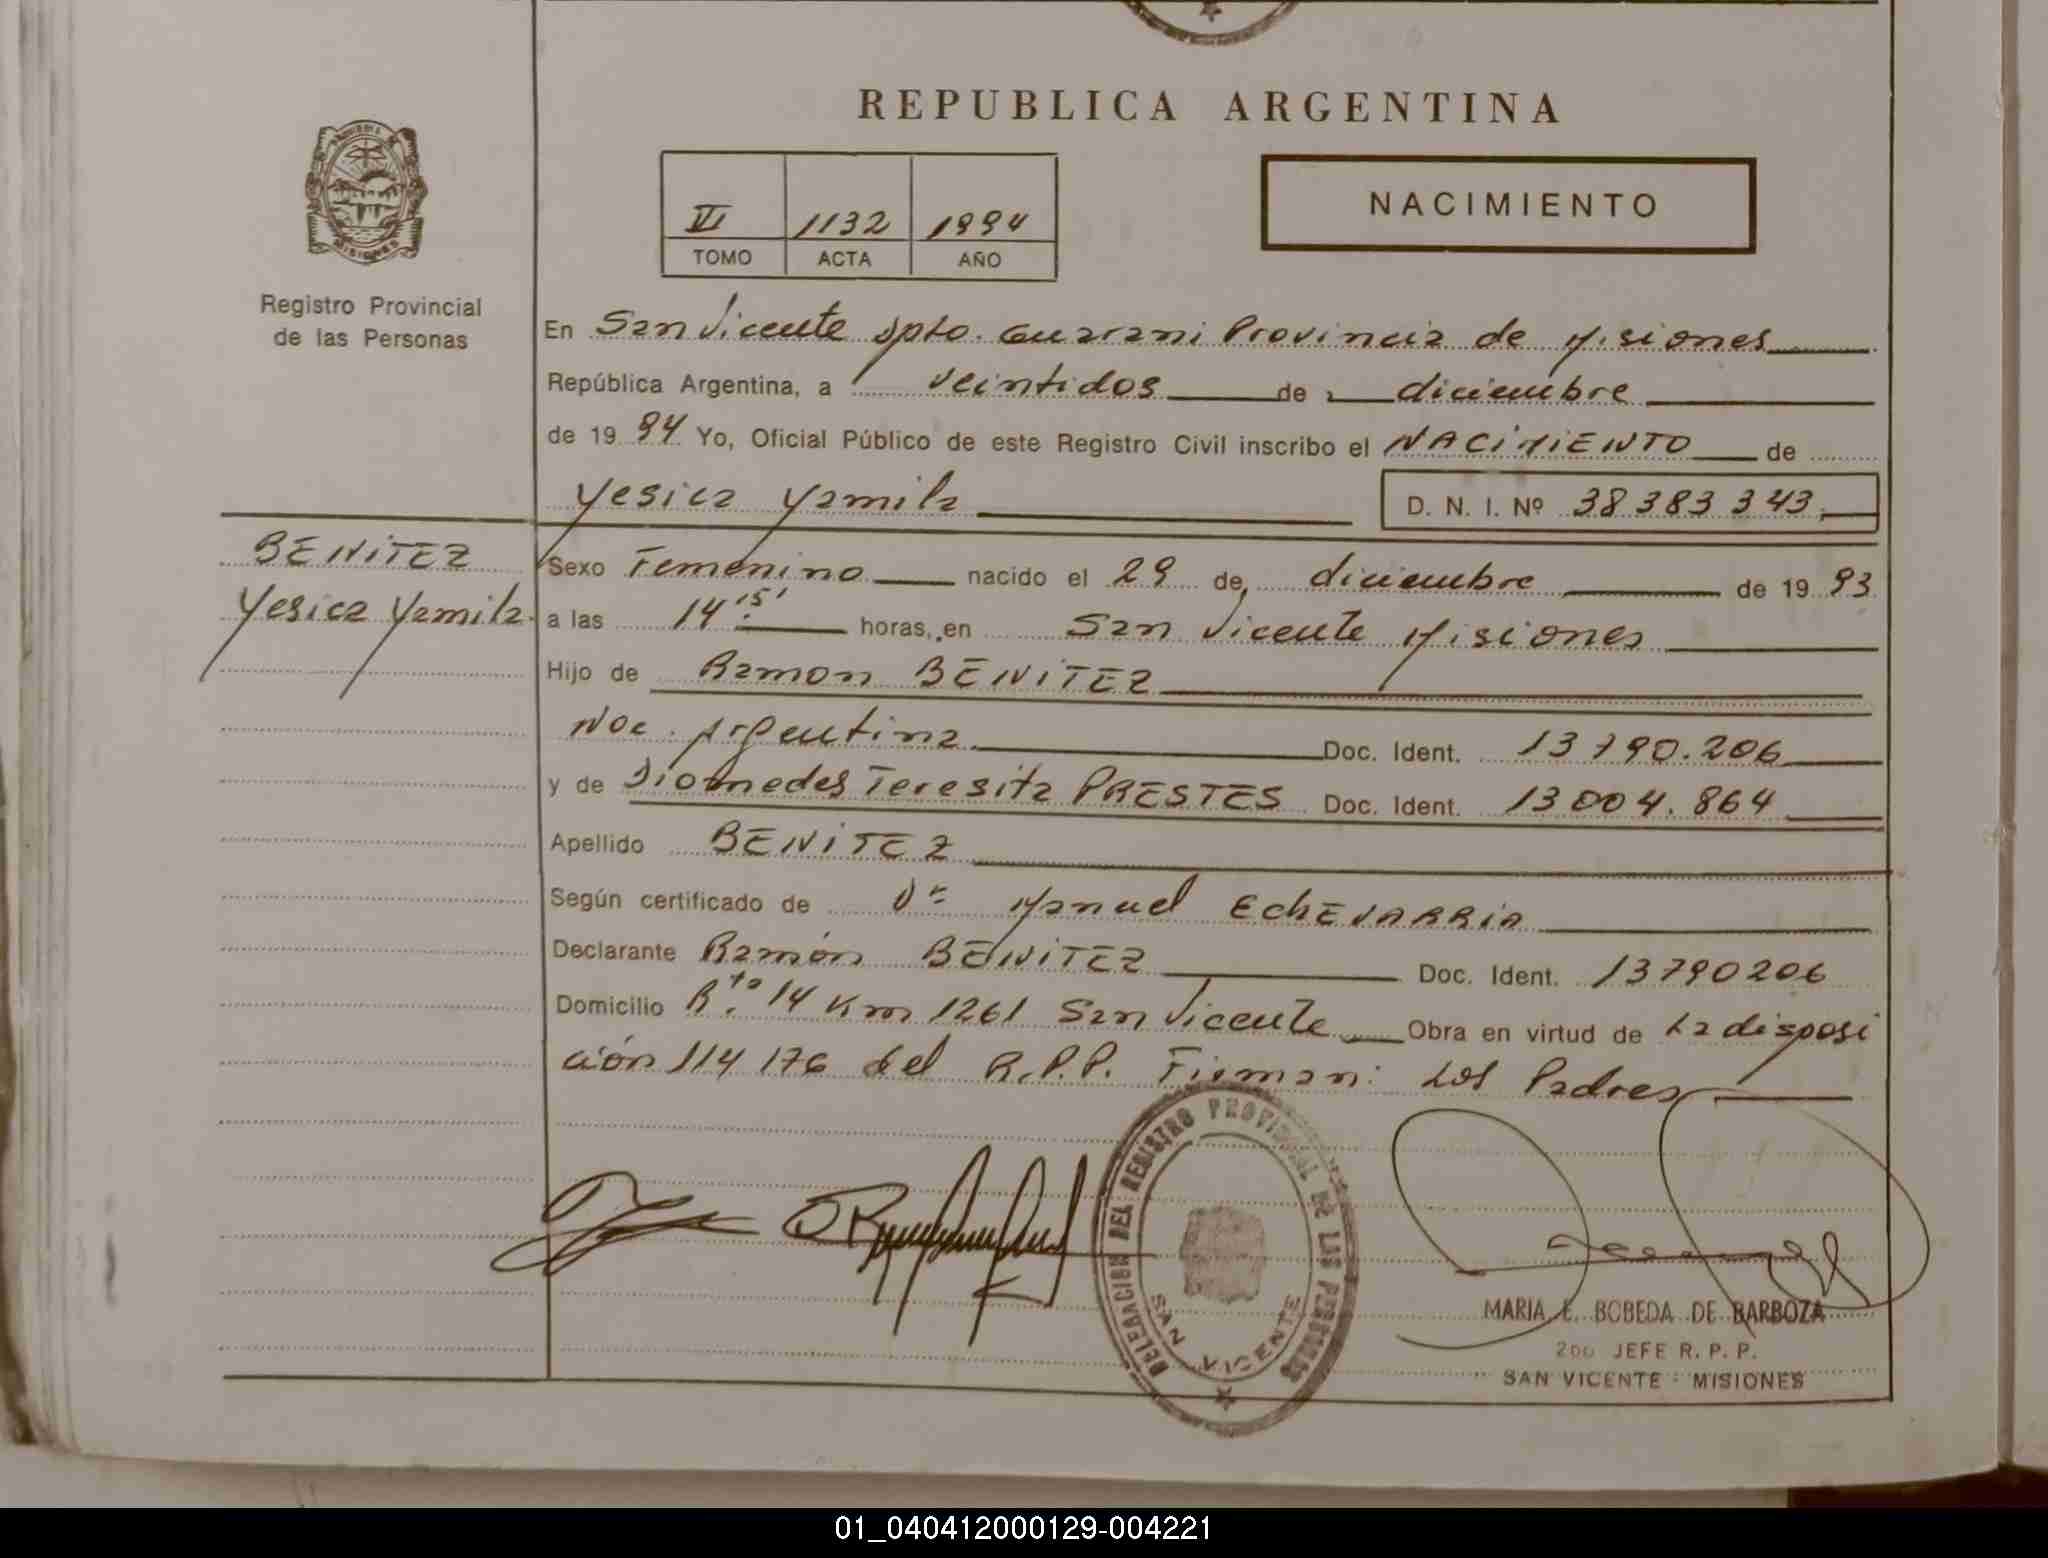 REPUBLICA ARGENTINA
VI 1132 1994
TOMO ACTA AÑO
NACIMIENTO
MISIONES
Registro Provincial
de las Personas
En San Vicente Dpto. Guarani Provincia de Misiones
República Argentina, a veintidos de diciembre
de 19 94 Yo, Oficial Público de este Registro Civil inscribo el NACIMIENTO de
Yesica Yamila D. N. I. Nº 38 383 343
BENITEZ
Yesica Yamila
Sexo Femenino nacido el 29 de diciembre de 19 93
a las 14 15' horas, en San Vicente Misiones
Hijo de Ramon BENITEZ
Nac. Argentina Doc. Ident. 13 790.206
y de Diomedes Teresita PRESTES Doc. Ident. 13 004.864
Apellido BENITEZ
Según certificado de Dr Manuel EchEVARRIA
Declarante Ramón BENITEZ Doc. Ident. 13790206
Domicilio Rta 14 Km 1261 San Vicente Obra en virtud de La disposi
ción 114 176 del R.P.P. Firman: Los Padres
DELEGACION DEL REGISTRO PROVINCIAL DE LAS PERSONAS
SAN VICENTE
MARIA E. BOBEDA DE BARBOZA
2do JEFE R. P. P.
SAN VICENTE - MISIONES
01_040412000129-004221